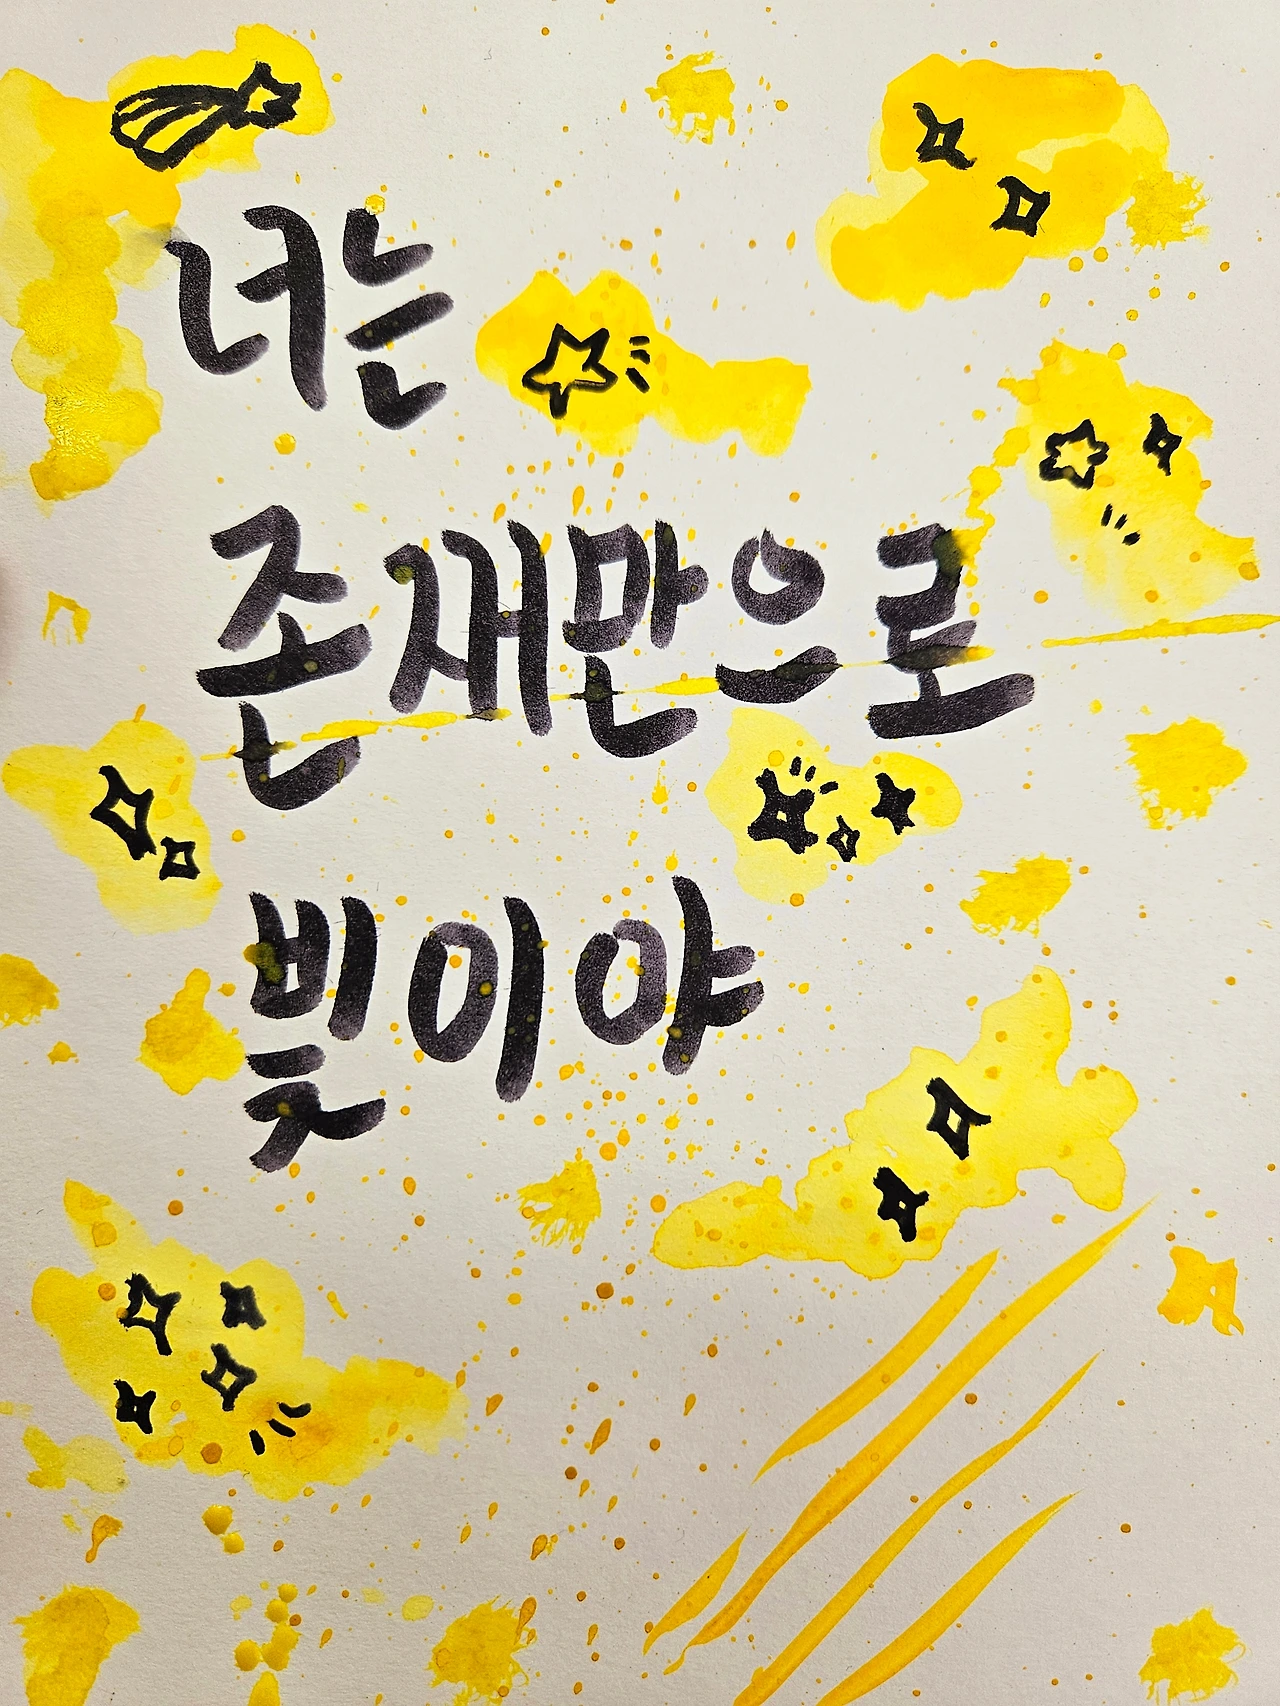 너는
존재만으로
빛이야